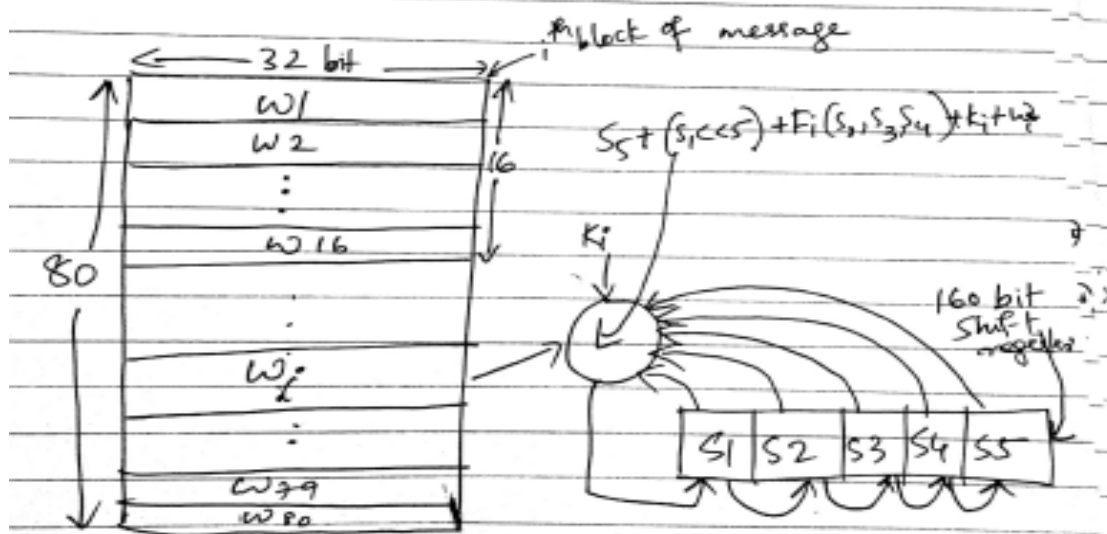 32 bit
block of message
W1
W2
⋮
W16
16
80
Wi
⋮
W79
W80
S5 + (S1<<5) + Fi(S2,S3,S4) + Ki + Wi
Ki
160 bit
Shift
register
S1 S2 S3 S4 S5